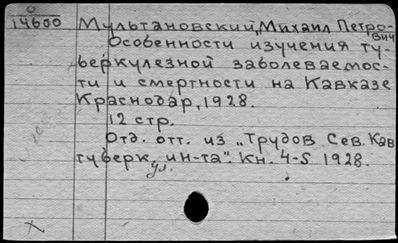 0
14600 Мультановский, Михаил Петро-
вич
Особенности изучения ту-
беркулезной заболеваемос-
ти и смертности на Кавказе
Краснодар, 1928.
12 стр.
Отд. отт. из „Трудов Сев. Кав
туберк. ин-та". Кн. 4-5 1928.